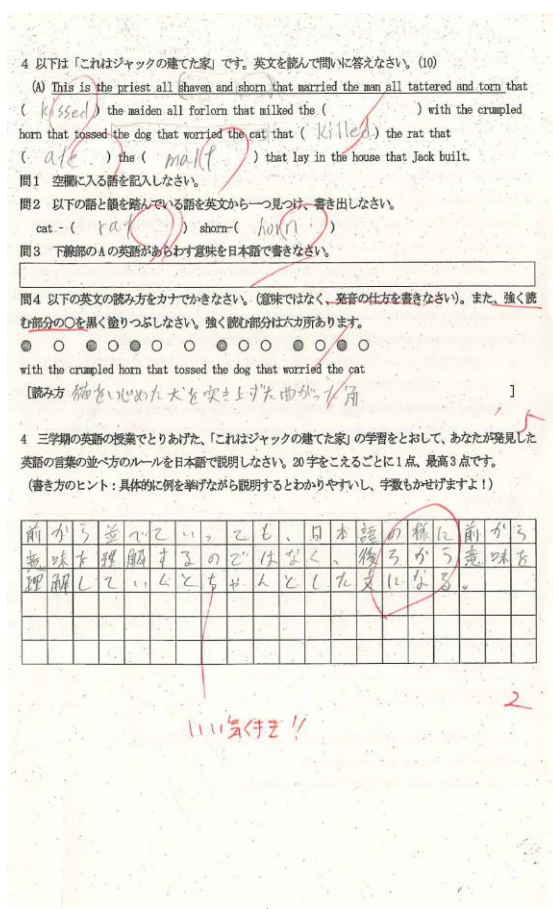 4 以下は「これはジャックの建てた家」です。英文を読んで問いに答えなさい。(10)
(A) This is the priest all shaven and shorn that married the man all tattered and torn that
( kissed ) the maiden all forlorn that milked the ( ) with the crumpled
horn that tossed the dog that worried the cat that ( killed ) the rat that
( ate ) the ( malt ) that lay in the house that Jack built.
問1 空欄に入る語を記入しなさい。
問2 以下の語と韻を踏んでいる語を英文から一つ見つけ、書き出しなさい。
cat - ( rat ) shorn-( horn )
問3 下線部のAの英語があらわす意味を日本語で書きなさい。
問4 以下の英文の読み方をカナでかきなさい。(意味ではなく、発音の仕方を書きなさい)。また、強く読
む部分の○を黒く塗りつぶしなさい。強く読む部分は六カ所あります。
with the crumpled horn that tossed the dog that worried the cat
[読み方 猫をいじめた犬を突き上げた曲がった角 ]
5
4 三学期の英語の授業でとりあげた、「これはジャックの建てた家」の学習をとおして、あなたが発見した
英語の言葉の並べ方のルールを日本語で説明しなさい。20字をこえるごとに1点、最高3点です。
(書き方のヒント：具体的に例を挙げながら説明するとわかりやすいし、字数もかせげますよ！)
前から並べていっても、日本語の様に前から
意味を理解するのではなく、後ろから意味を
理解していくとちゃんとした文になる。
2
いい気付き!!